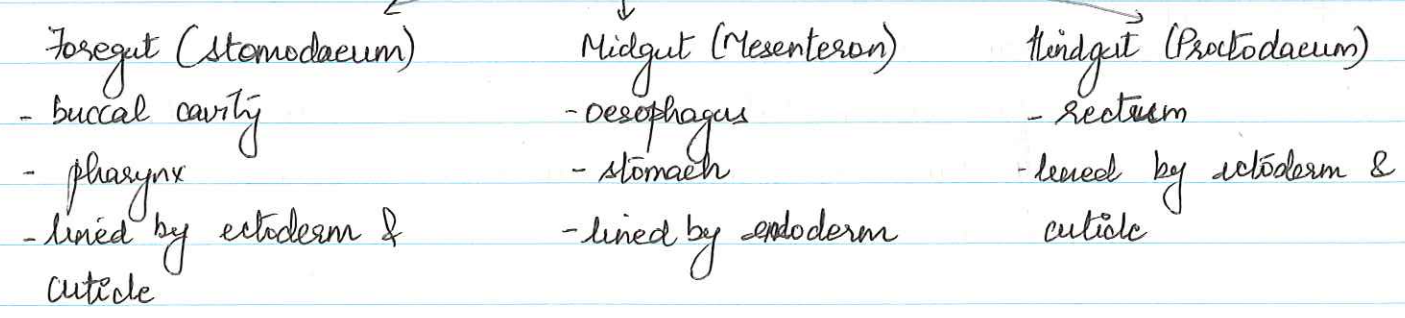 Foregut (Stomodaeum)
- buccal cavity
- pharynx
- lined by ectoderm &
cuticle
Midgut (Mesenteron)
- oesophagus
- stomach
- lined by endoderm
Hindgut (Proctodaeum)
- rectum
- lined by ectoderm &
cuticle